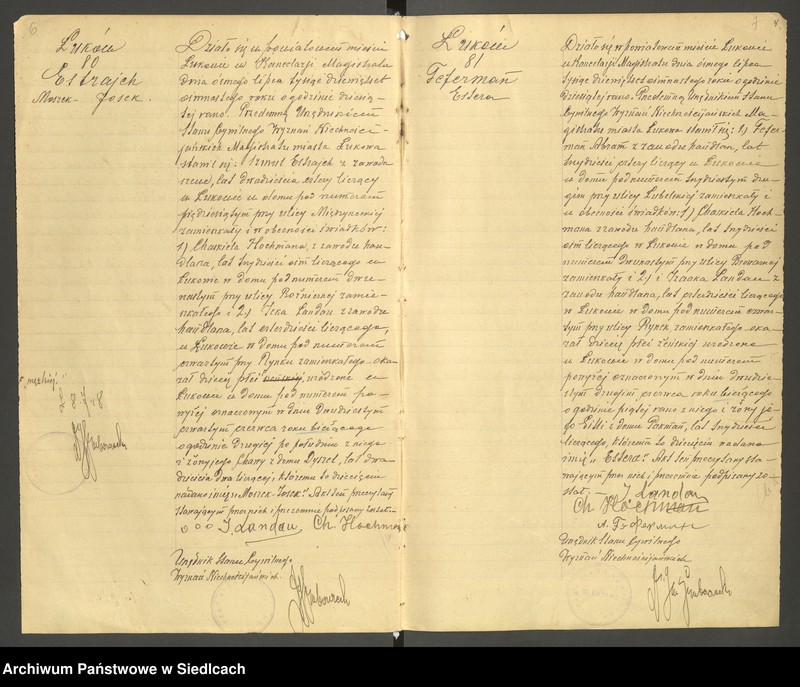 6
Łuków
80
Estrajch
Moszek-Josek.
Działo się w powiatowém mieście
Łukowie w Kancelarji Magistratu
dnia ósmego lipca tysiąc dziewięćset
osmnastego roku o godzinie dziesią-
tej rano. Przedemną Urzędnikiem
Stanu Cywilnego Wyznań Niechrześci-
jańskich Magistratu miasta Łukowa
stawił się: Szmul Estrajch z zawodu
szewc, lat dwadzieścia cztery liczący
w Łukowie w domu pod numerem
pięćdziesiątym przy ulicy Międzyrzeckiej
zamieszkały i w obecności świadków:
1) Chaskiela Hochmana, z zawodu han-
dlarza, lat trzydzieści ośm liczącego w
Łukowie w domu pod numerem dwu-
nastym przy ulicy Bożniczej zamiesz-
kałego i 2) Icka Landau z zawodu
handlarza, lat czterdzieści liczącego,
w Łukowie w domu pod numerem
czwartym przy Rynku zamieszkałego oka-
zał dziecię płci żeńskiej, urodzone w
"męzkiej"
Łukowie w domu pod numerem po-
wyżej oznaczonym w dniu dwudziestym
czwartym czerwca roku bieżącego
o godzinie drugiej po południu z niego
i żony jego Chany z domu Dyszel, lat dwa-
dzieścia dwa liczącej, któremu to dziecięciu
nadano imię: Moszek-Josek. Akt ten przeczytany
stawającym przez nich i przezemnie podpisany został.
J. Landau, Ch. Hochman
Urzędnik Stanu Cywilnego
Wyznań Niechrześcijańskich.
7
Łuków
81
Feferman
Estera
Działo się w powiatowém mieście Łukowie
w Kancelarji Magistratu dnia ósmego lipca
tysiąc dziewięćset osmnastego roku o godzinie
dziesiątej rano. Przedemną Urzędnikiem Stanu
Cywilnego Wyznań Niechrześcijańskich Ma-
gistratu miasta Łukowa stawił się: Fefer-
man Abram z zawodu handlarz, lat
trzydzieści cztery liczący w Łukowie
w domu pod numerem trzydziestym dru-
gim przy ulicy Lubelskiej zamieszkały i
w obecności świadków: 1) Chaskiela Hoch-
mana z zawodu handlarza, lat trzydzieści
ośm liczącego w Łukowie w domu pod
numerem dwunastym przy ulicy Browarnej
zamieszkały i 2) Icaaka Landau z
zawodu handlarza, lat czterdzieści liczącego
w Łukowie w domu pod numerem czwar-
tym przy ulicy Rynek zamieszkałego oka-
zał dziecię płci żeńskiej urodzone
w Łukowie w domu pod numerem
powyżej oznaczonym w dniu dwudzie-
stym drugim czerwca roku bieżącego
o godzinie piątej rano z niego i żony je-
go Estli z domu Pekman, lat trzydzieści
liczącego, któremu to dziecięciu nadano
imię "Estera". Akt ten przeczytany sta-
wającym przez nich i przezemnie podpisany zo-
stał. J. Landau
Ch. Hochman
Urzędnik Stanu Cywilnego
Wyznań Niechrześcijańskich
Archiwum Państwowe w Siedlcach